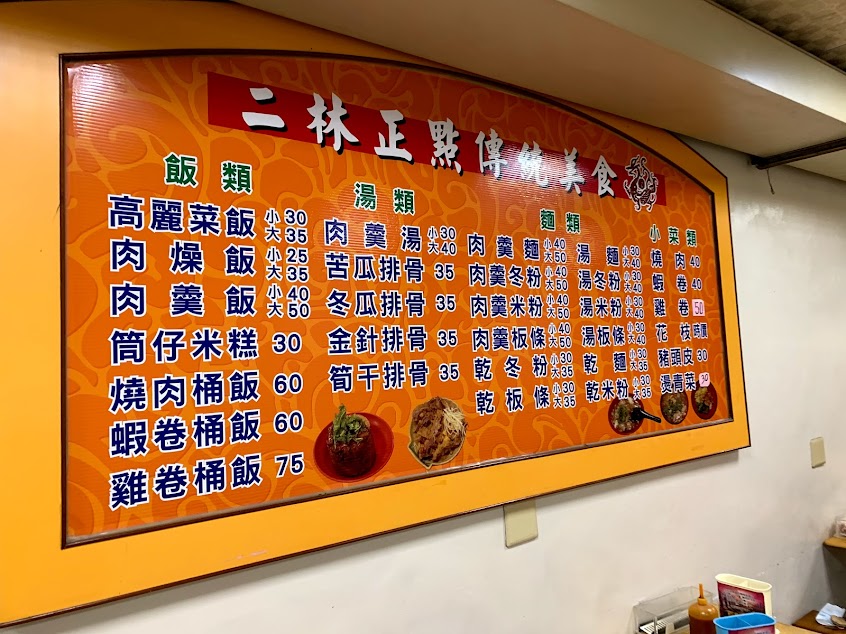 二林正點傳統美食
飯類
高麗菜飯 小30 大35
肉燥飯 小25 大35
肉羹飯 小40 大50
筒仔米糕 30
燒肉桶飯 60
蝦卷桶飯 60
雞卷桶飯 75
湯類
肉羹湯 小30 大40
苦瓜排骨 35
冬瓜排骨 35
金針排骨 35
筍干排骨 35
麵類
肉羹麵 小40 大50
肉羹冬粉 小40 大50
肉羹米粉 小40 大50
肉羹板條 小40 大50
乾冬粉 小30 大35
乾板條 小30 大35
湯麵 小30 大40
湯冬粉 小30 大40
湯米粉 小30 大40
湯板條 小30 大40
乾麵 小30 大35
乾米粉 小30 大35
小菜類
燒肉 40
蝦卷 40
雞卷 50
花枝 時價
豬頭皮 30
燙青菜 30